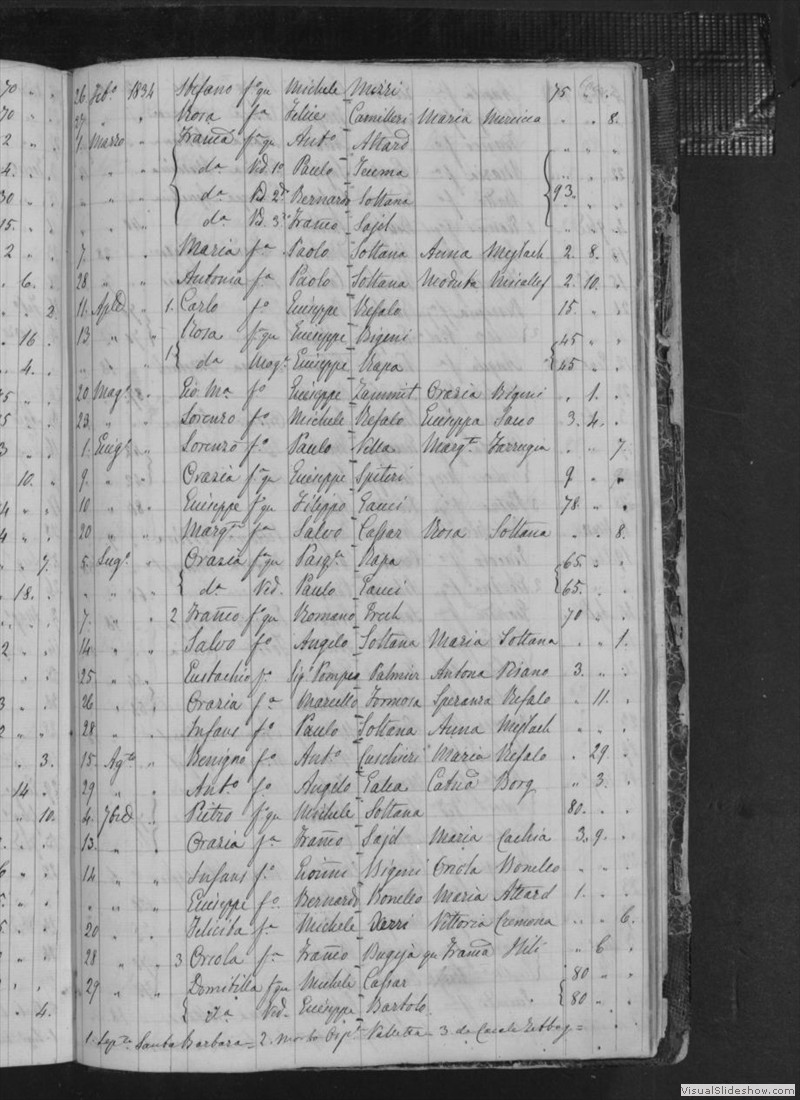 70 . . 26 Feb.o 1834 Stefano f.o qu Michele Mizzi 75 . .
70 . . 27 " " Rosa f.a Felice Camilleri Maria " " 8.
2 " . 1 Marzo " Franca f.a qu Ant.o Attard " " "
4. . . " " d.a Ved. 1.o Paulo " " "
30 . . " " d.a Ved. 2.o Bernardo Soltana 93. " "
15. . . " " d.a Ved. 3.o Franco Sajd " "
2 . . 7. " " Maria f.a Paolo Soltana Anna 2. 8. .
. 6. . 28 " " Antonia f.a Paolo Soltana Modesta 2. 10. .
. . 2. 11. Aple " 1. Carlo f.o Giuseppe Refalo 15. . .
. 16. . 13 " " Rosa f.a qu Giuseppe Bigeni 45 " "
. 4. . " " 1 d.a Mog.e Giuseppe Rapa 45 . .
20 Mag.o " Gio M.a f.o Giuseppe Zammit Orazia Bigeni . 1. .
23. " " Lorenzo f.o Michele Refalo Giuseppa 3. 4. .
3 . . 1. Giug.o " Lorenzo f.o Paulo Vella Marg.ta Farrugia . " 7.
. 10. . 9. " " Orazia f.a qu Giuseppe Spiteri 9 "
10. " " Giuseppe f.o qu Filippo Gauci 78. " .
20 " " Marg.ta f.a Salvo Caspar Rosa Soltana " " 8.
. . 7. 5. Lug.o " Orazia f.a qu Pasq.e Rapa 65. . .
. 18. . " " d.a Ved. Paulo Gauci 65. . .
7. " " 2 Franco f.o qu Romano 70 " .
2 . . 14. " " Salvo f.o Angelo Soltana Maria Soltana . . 1.
25 " " Eustachio f.o Sig.r Pompeo Palmier Antona Pisano 3. " .
26 " " Orazia f.a Marcello Formosa Speranza Refalo . 11. .
28 " " Infans f.o Paulo Soltana Anna . . .
. . 3. 15. Ag.to " Benigno f.o Ant.o Cuschieri Maria Refalo . 29 .
. 14 . 29 " " Ant.o f.o Angelo Galea Catna Borg " 3. .
. . 10. 4. 7bre " Pietro f.o qu Michele Soltana 80. . .
13. " " Orazia f.a Franco Sajd Maria Cachia 3. 9. .
14 " " Infans f.o Gioñi Bigeni Orsola Bonello . . .
" " " Giuseppe f.o Bernardo Bonello Maria Attard 1. . .
20 " " Felicita f.a Michele Xerri Vittoria Cremona . . 6.
28 " " 3 Orsola f.a Franco Bugeja qu Franca Mili " 6 .
29 " " Domitilla f.a qu Michele Caspar 80 " .
. . 4. d.a Ved. Giuseppe Bartolo 80 " .
1. Santa Barbara = 2. morto Osp.le Valletta = 3. da Casale Zebbug =
VisualSlideshow.com